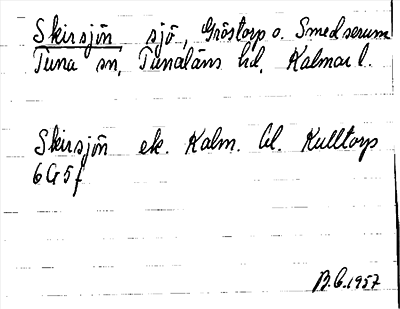 Skirsjön sjö, Gröstorp o. Smedserum
Tuna sn, Tunaläns hd, Kalmar l.
Skirsjön ek. Kalm. bl. Kulltorp
6G5f
B.C.1957